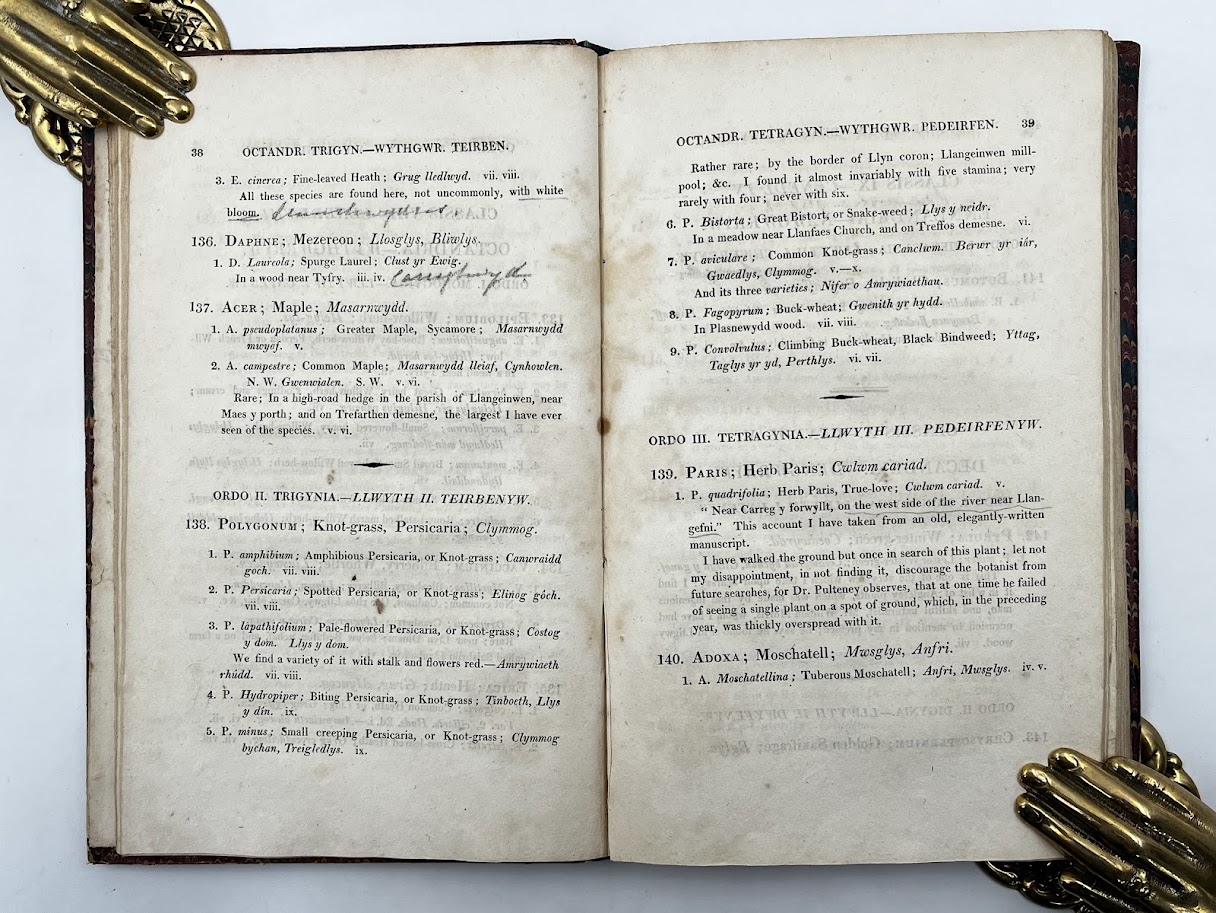 38 OCTANDR. TRIGYN.—WYTHGWR. TEIRBEN.
3. E. cinerea; Fine-leaved Heath; Grug lledlwyd. vii. viii.
All these species are found here, not uncommonly, with white
bloom.
136. DAPHNE; Mezereon; Llosglys, Bliwlys.
1. D. Laureola; Spurge Laurel; Clust yr Ewig.
In a wood near Tyfry. iii. iv.
137. ACER; Maple; Masarnwydd.
1. A. pseudoplatanus; Greater Maple, Sycamore; Masarnwydd
mwyaf. v.
2. A. campestre; Common Maple; Masarnwydd lleiaf, Cynhowlen.
N. W. Gwenwialen. S. W. v. vi.
Rare; In a high-road hedge in the parish of Llangeinwen, near
Maes y porth; and on Trefarthen demesne, the largest I have ever
seen of the species. v. vi.
ORDO II. TRIGYNIA.—LLWYTH II. TEIRBENYW.
138. POLYGONUM; Knot-grass, Persicaria; Clymmog.
1. P. amphibium; Amphibious Persicaria, or Knot-grass; Canwraidd
goch. vii. viii.
2. P. Persicaria; Spotted Persicaria, or Knot-grass; Elinog gôch.
vii. viii.
3. P. lapathifolium; Pale-flowered Persicaria, or Knot-grass; Costog
y dom. Llys y dom.
We find a variety of it with stalk and flowers red.—Amrywiaeth
rhûdd. vii. viii.
4. P. Hydropiper; Biting Persicaria, or Knot-grass; Tinboeth, Llys
y din. ix.
5. P. minus; Small creeping Persicaria, or Knot-grass; Clymmog
bychan, Treigledlys. ix.
OCTANDR. TETRAGYN.—WYTHGWR. PEDEIRFEN. 39
Rather rare; by the border of Llyn coron; Llangeinwen mill-
pool; &c. I found it almost invariably with five stamina; very
rarely with four; never with six.
6. P. Bistorta; Great Bistort, or Snake-weed; Llys y neidr.
In a meadow near Llanfaes Church, and on Treffos demesne. vi.
7. P. aviculare; Common Knot-grass; Canclwm. Berwr yr iâr,
Gwaedlys, Clymmog. v.—x.
And its three varieties; Nifer o Amrywiaethau.
8. P. Fagopyrum; Buck-wheat; Gwenith yr hydd.
In Plasnewydd wood. vii. viii.
9. P. Convolvulus; Climbing Buck-wheat, Black Bindweed; Yttag,
Taglys yr yd, Perthlys. vi. vii.
ORDO III. TETRAGYNIA.—LLWYTH III. PEDEIRFENYW.
139. PARIS; Herb Paris; Cwlwm cariad.
1. P. quadrifolia; Herb Paris, True-love; Cwlwm cariad. v.
“ Near Carreg y forwyllt, on the west side of the river near Llan-
gefni.” This account I have taken from an old, elegantly-written
manuscript.
I have walked the ground but once in search of this plant; let not
my disappointment, in not finding it, discourage the botanist from
future searches, for Dr. Pulteney observes, that at one time he failed
of seeing a single plant on a spot of ground, which, in the preceding
year, was thickly overspread with it.
140. ADOXA; Moschatell; Mwsglys, Anfri.
1. A. Moschatellina; Tuberous Moschatell; Anfri, Mwsglys. iv. v.